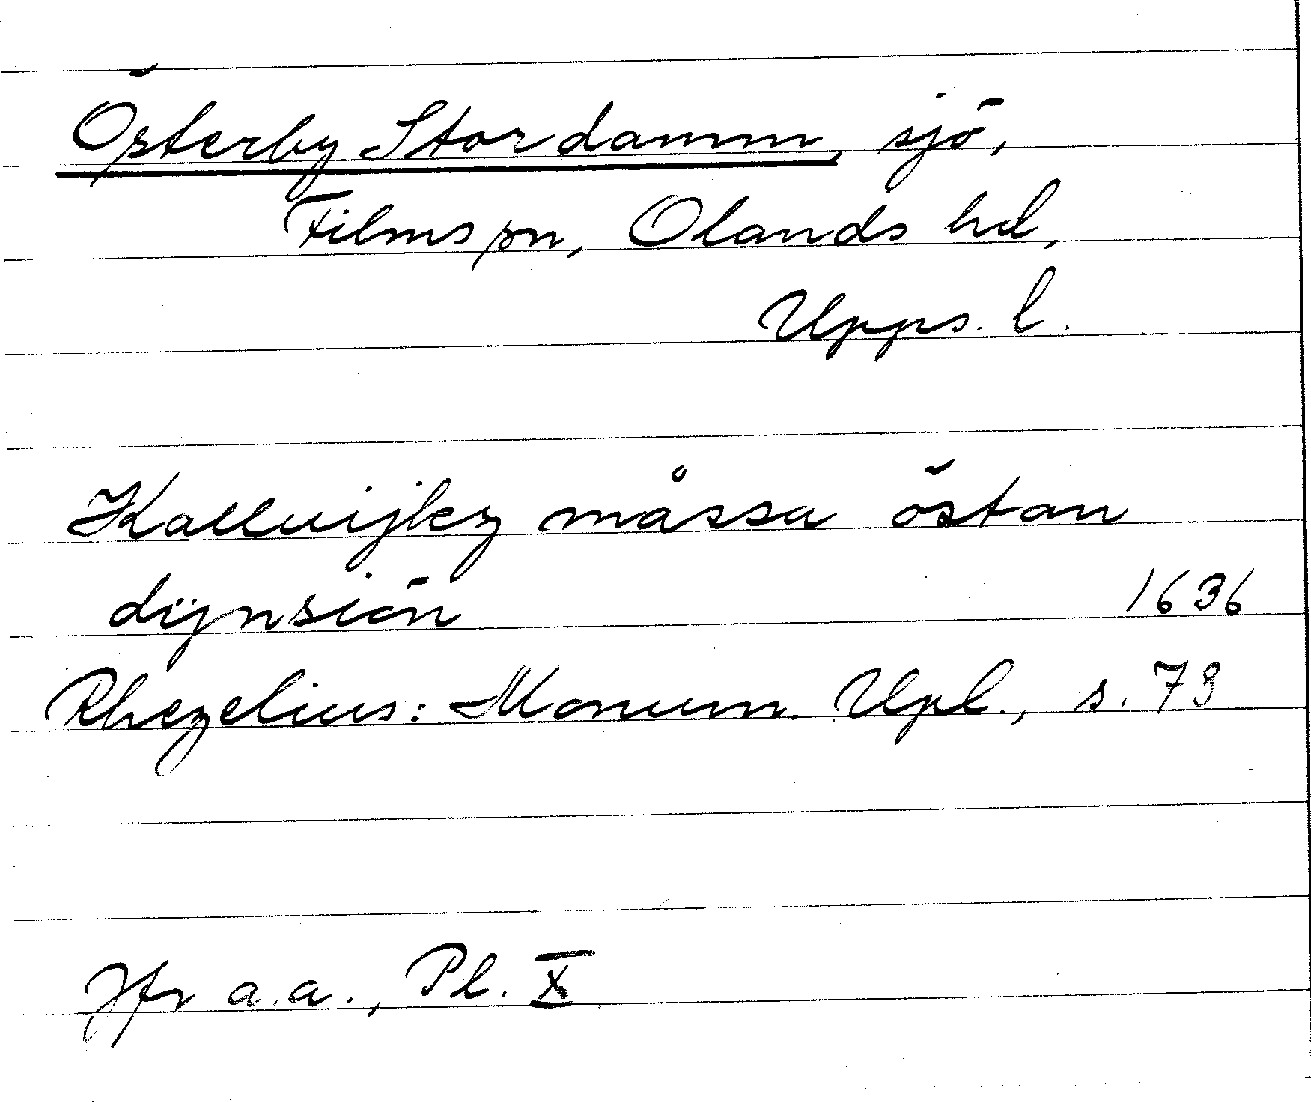 Österby Stordamm, sjö,
Films sn, Olands hd,
Upps. l.
Kalluijkz måssa östan
dijnsiön 1636
Rhezelius: Monum. Upl., s. 73
Jfr a.a., Pl. X